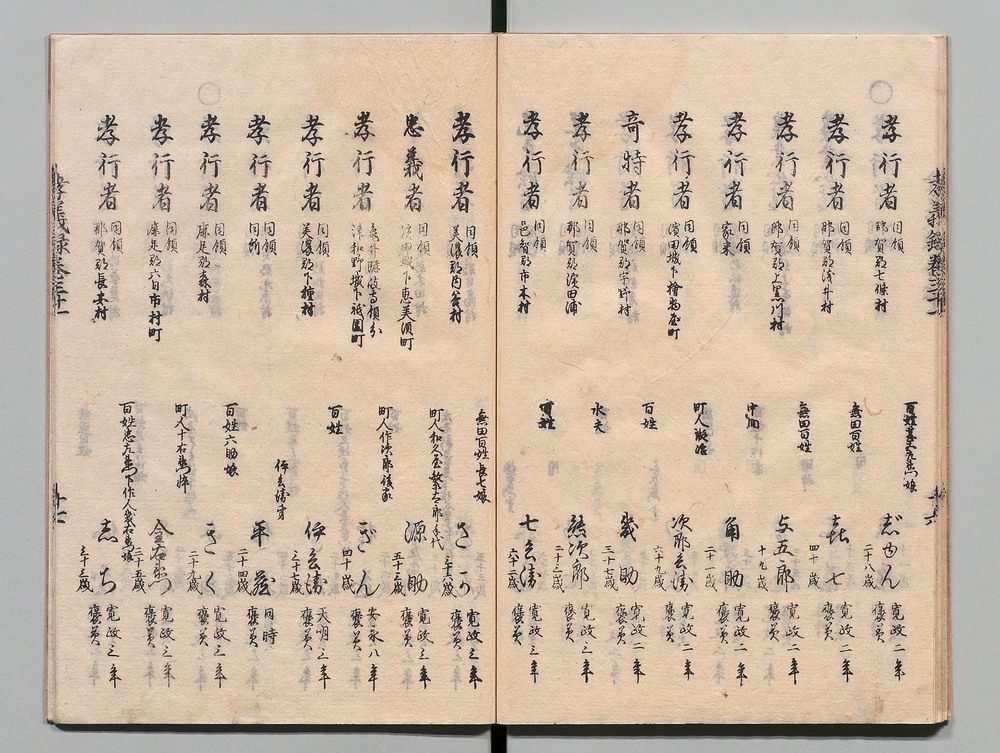 孝行者 同領 那賀郡七條村 百姓 娘 二十八歳 寛政二年 褒美
孝行者 同領 那賀郡浅井村 無田百姓 㐂七 四十歳 寛政二年 褒美
孝行者 同領 那賀郡上黒川村 無田百姓 与五郎 十九歳 寛政二年 褒美
孝行者 同領 家来 中間 角助 二十一歳 寛政二年 褒美
孝行者 同領 濱田城下檜物屋町 町人 次郎兵衛 六十九歳 寛政二年 褒美
奇特者 同領 那賀郡宇野村 百姓 幾助 三十七歳 寛政二年 褒美
孝行者 同領 那賀郡濱田浦 水夫 熊次郎 二十三歳 寛政三年 褒美
孝行者 同領 邑智郡市木村 百姓 七兵衛 六十二歳 寛政三年 褒美
孝行者 同領 美濃郡内谷村 無田百姓長七娘 さつ 寛政三年 褒美
忠義者 同領 城下恵美須町 町人和久屋繁太郎手代 源助 五十三歳 寛政三年 褒美
孝行者 亀井隠岐守領分 津和野城下祇園町 町人作次郎後家 ぎん 四十歳 安永八年 褒美
孝行者 同領 美濃郡下種村 百姓 伊兵衛 三十七歳 天明三年 褒美
孝行者 同領 同所 伊兵衛弟 平蔵 二十四歳 同時 褒美
孝行者 同領 鹿足郡森村 百姓六助娘 きく 二十九歳 寛政三年 褒美
孝行者 同領 鹿足郡六日市村町 町人十右衛門忰 金右衛門 二十五歳 寛政三年 褒美
孝行者 同領 那賀郡長安村 百姓忠左衛門下作人 娘 志ち 三十三歳 寛政三年 褒美
孝義録巻三十一